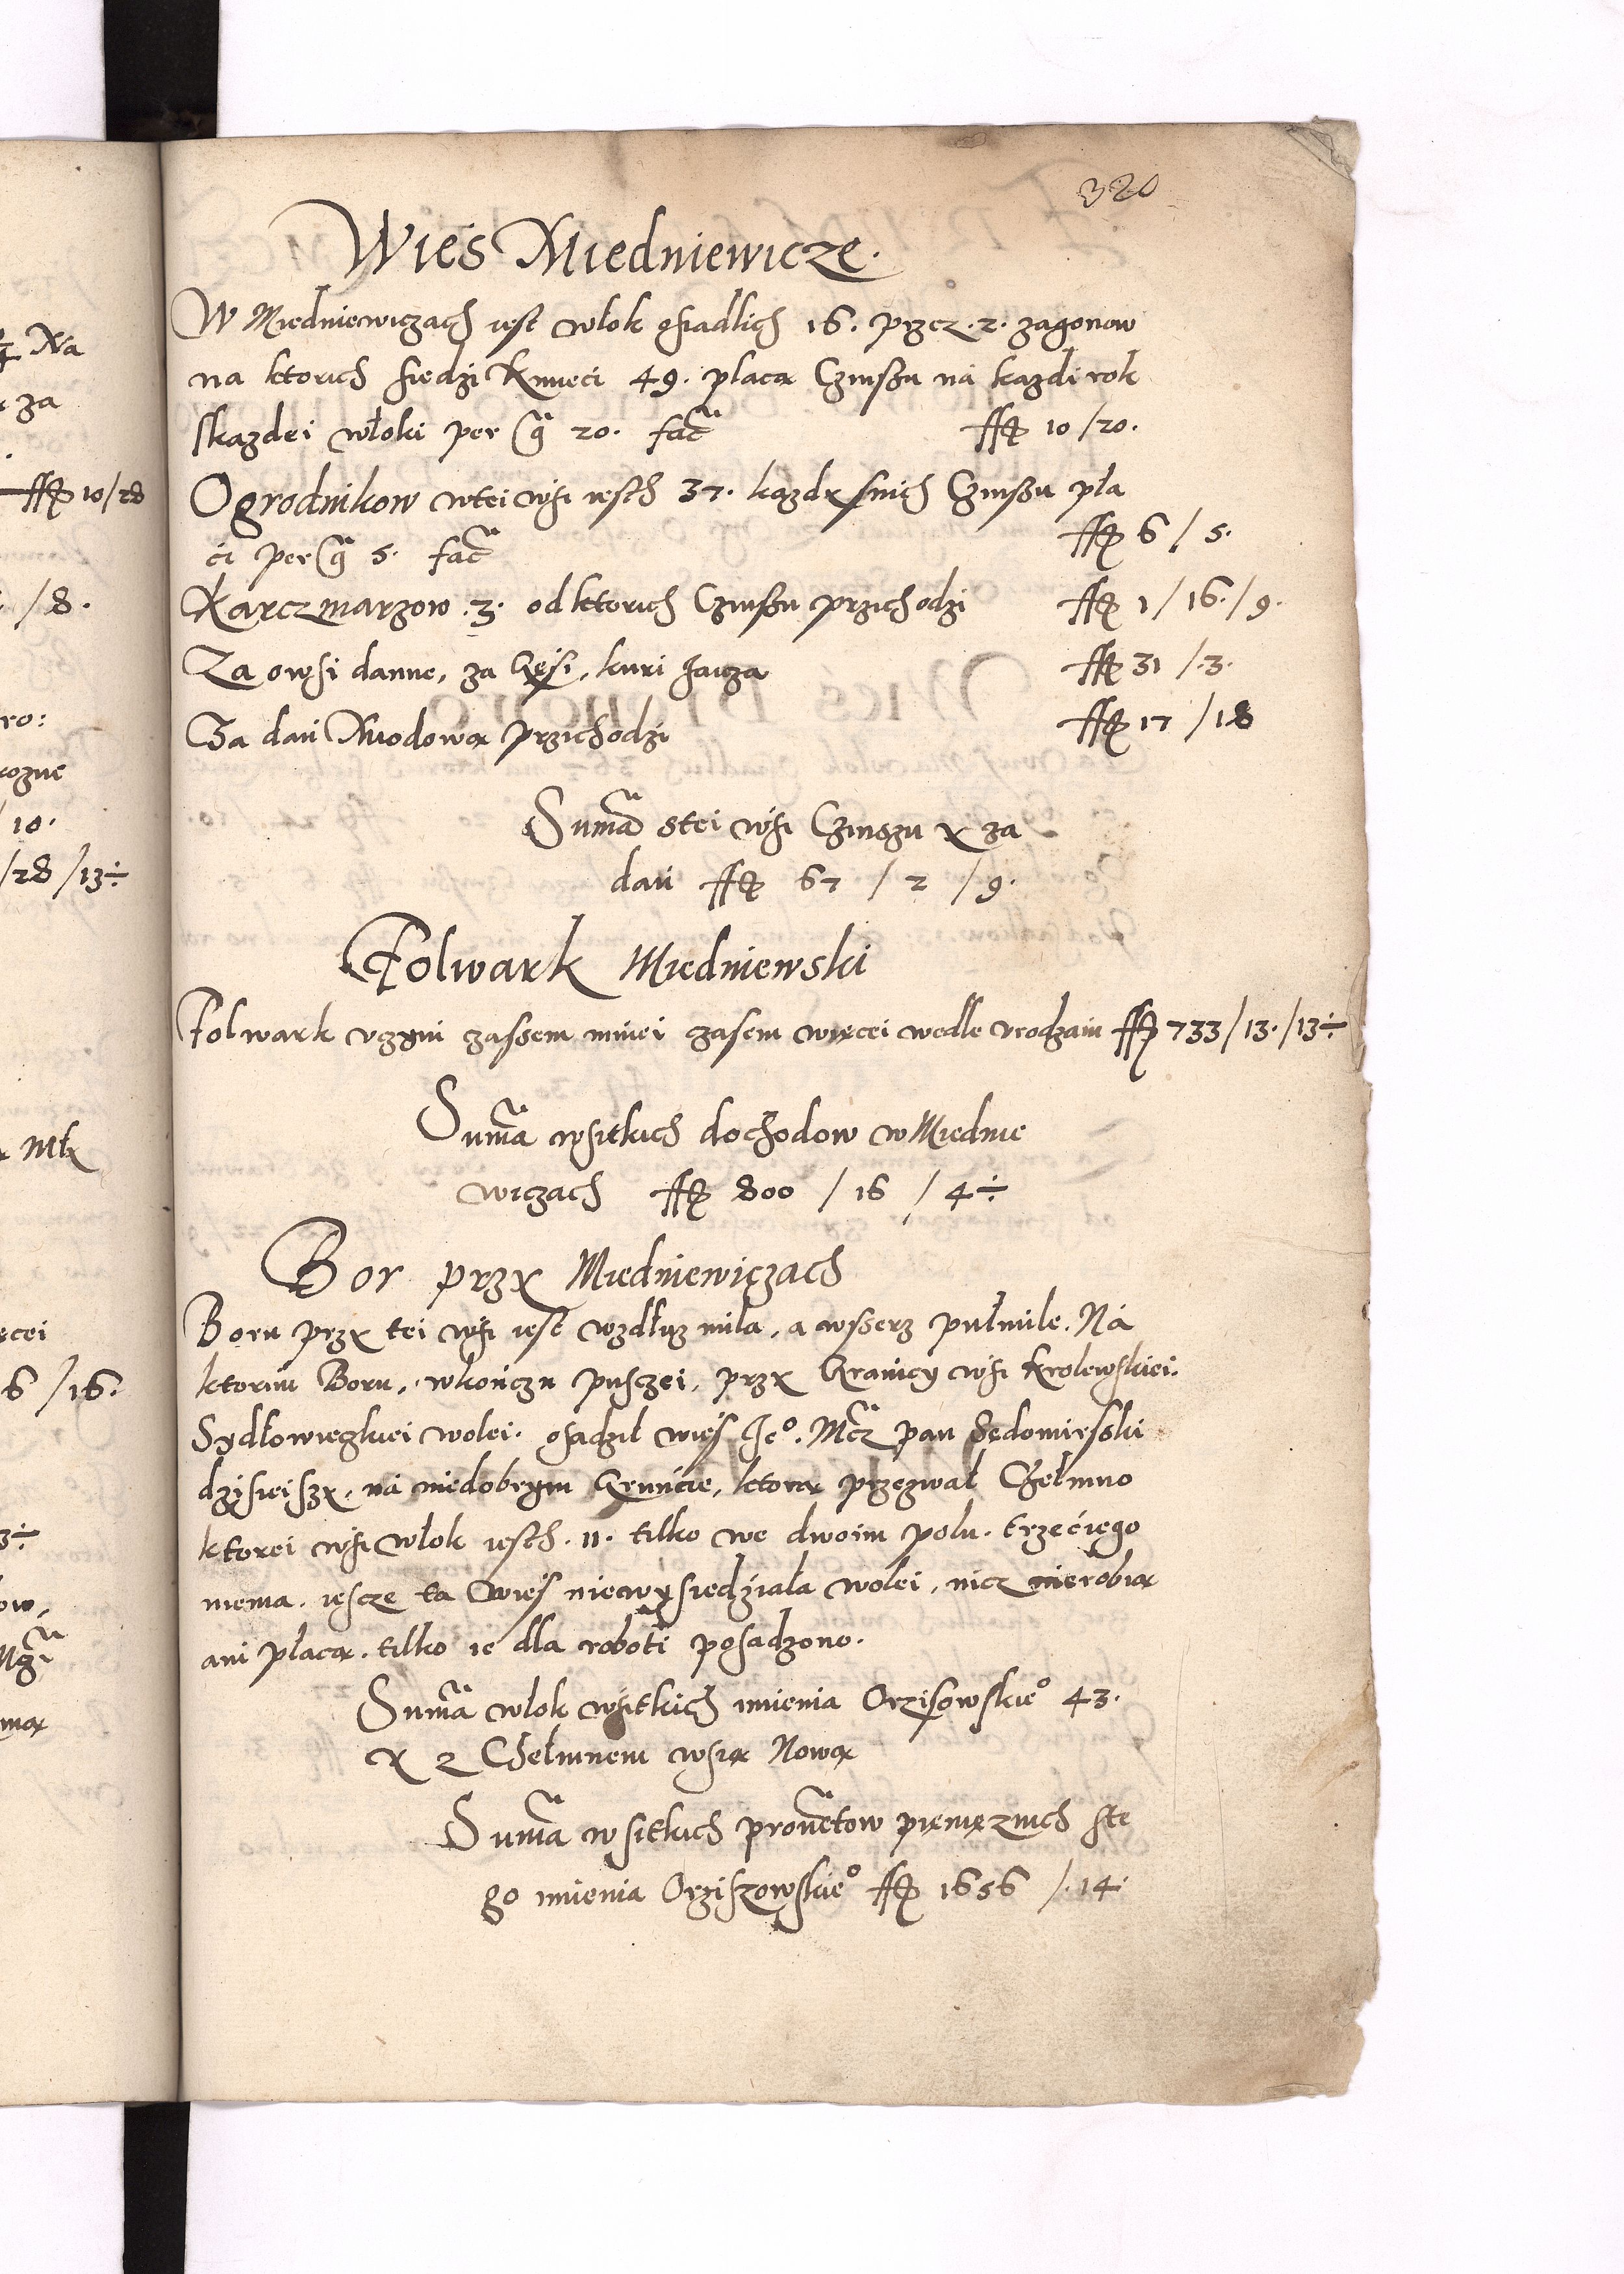 320
Wieś Miedniewicze.
W Miedniewiczach iest włok osiadlich 16. przez .2. zagonow
na ktorich siedzi Kmieci 49. placą Czinszu na kazdi rok
skazdei włoki per gͣ 20. facͭ ff 10 /20.
Ogrodnikow wtei wsi iesth 37. kazdy snich Czinszu pła
ci per gͣ 5. facͭ ff 6 / 5.
Karczmarzow .3. od ktorich Czinszu przichodzi ff 1 / 16. / 9.
Za owsi danne, za Gęsi, kuri Jaicza ff 31 / .3.
Za dań Miodową przichodzi ff 17 / 18
Suma stei wsi Czinszu y za
dań ff 67 / 2 / 9.
Folwark Miedniewski
Folwark vczyni czassem mniei czasem więcei wedle vrodzaiu ff 733 / 13. / 13÷
Suma wsitkich dochodow w Miednie
wiczach ff 800 / 16 / 4÷
Bor przy Miedniewiczach
Boru przy tei wsi iest wzdłuz mila, a wsserz pułmile. Na
ktorim Boru, wkończu puszczei, przy Granicy wsi krolewskiei.
Sydłowieczkiei wolei. osadził wieś Je⁰. Mcz pan Sędomirsski
dzisieiszy, na niedobrym Gruncie, ktorą przezwał Chełmno
ktorei wsi włok iesth .11. tilko we dwoim polu. trzeciego
niema. iescze ta wieś niewysiedziala wolei, nicz nierobią
ani płacą. tilko ie dla roboti posadzono.
Suma włok wsitkich imienia Orzisowskie⁰ 43.
y z Chełmnem wsią Nową
Suma wsitkich prouentow pienięznich ste
go imienia Orziszowskie⁰ ff 1656 / .14.